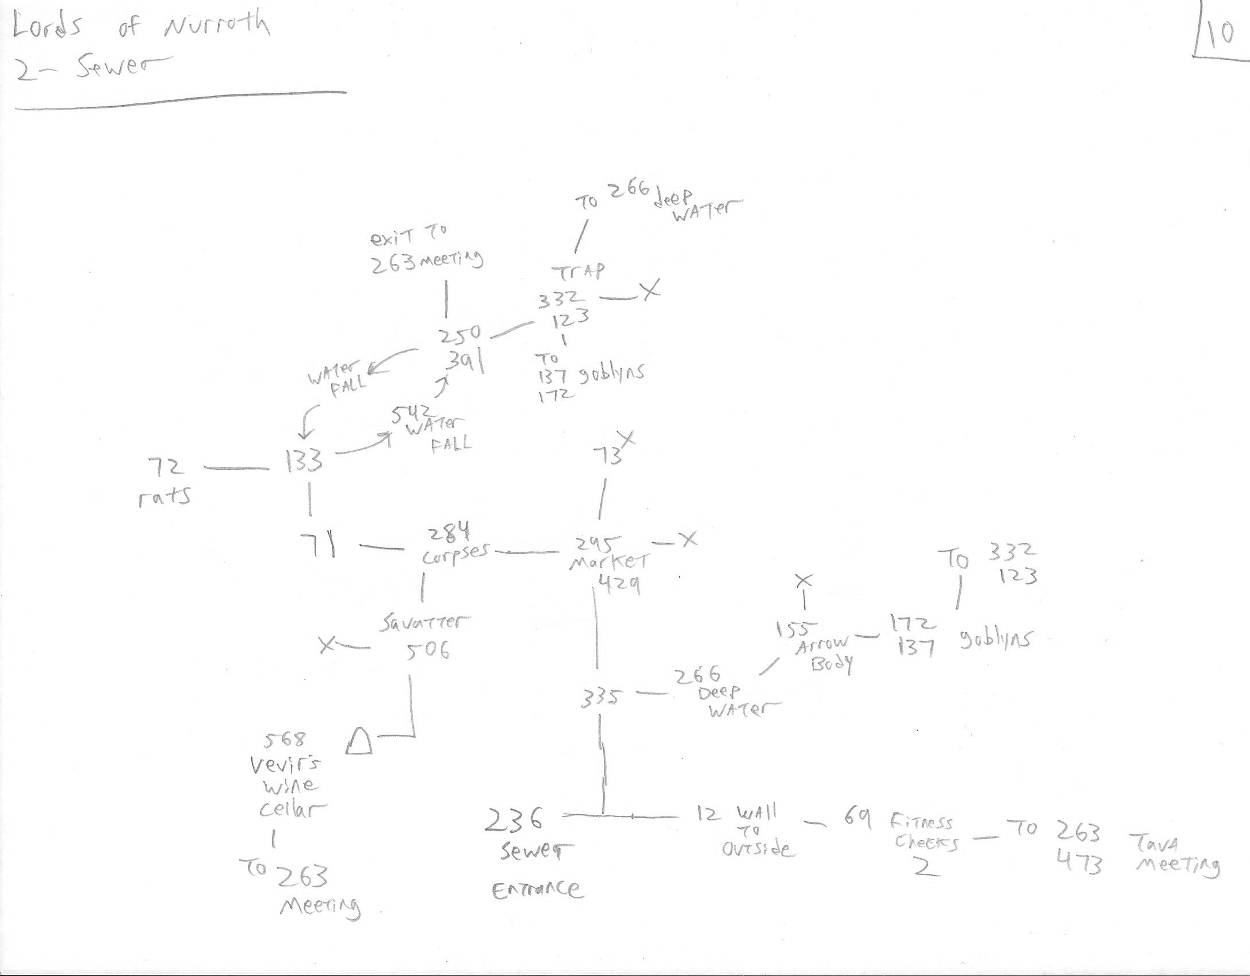 Lords of Nurroth
10
2- Sewer
TO 266 deep
WATer
exiT TO
263 MeeTiNg
TrAP
332
123
X
250
391
TO
137 goblyns
172
WATer
FALL
542
WATer
FALL
X
73
72
rats
133
71
284
Corpses
295
MarkeT
429
X
TO 332
123
X
155
Arrow
Body
172
137 goblyns
SavaTTer
506
X
335
266
Deep
WATer
568
Vevir's
wiNe
Cellar
TO 263
MeeTiNg
236
Sewer
ENTraNCe
12 WAll
TO
OuTSide
69 FiTNess
CheCks
2
TO 263
473
TavA
MeeTiNg